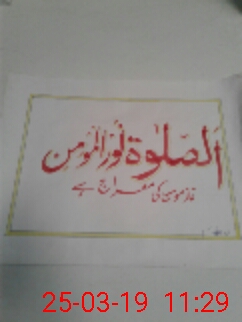 الصلوٰة نور المومن
نماز مومن کی معراج ہے
25-03-19 11:29